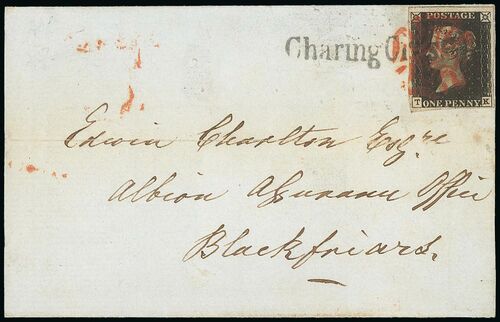 Charing Cross
POSTAGE
T K
ONE PENNY
Edwin Charlton Esqre
Albion Assurance Office
Blackfriars.